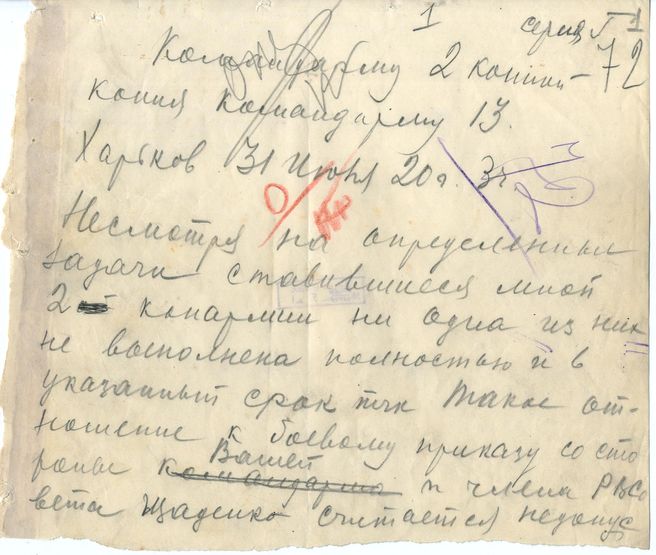 1 серия Г 1
Командарму 2 конной 72
копия командарму 13.
Харьков 31 Июля 20 г. 3 ч.
Несмотря на определенные
задачи ставившиеся мной
2 конармии ни одна из них
не выполнена полностью и в
указанный срок тчк Такое от-
ношение к боевому приказу со сто
роны Вашей командарма и члена РВСо
вета Щаденко считается недопус